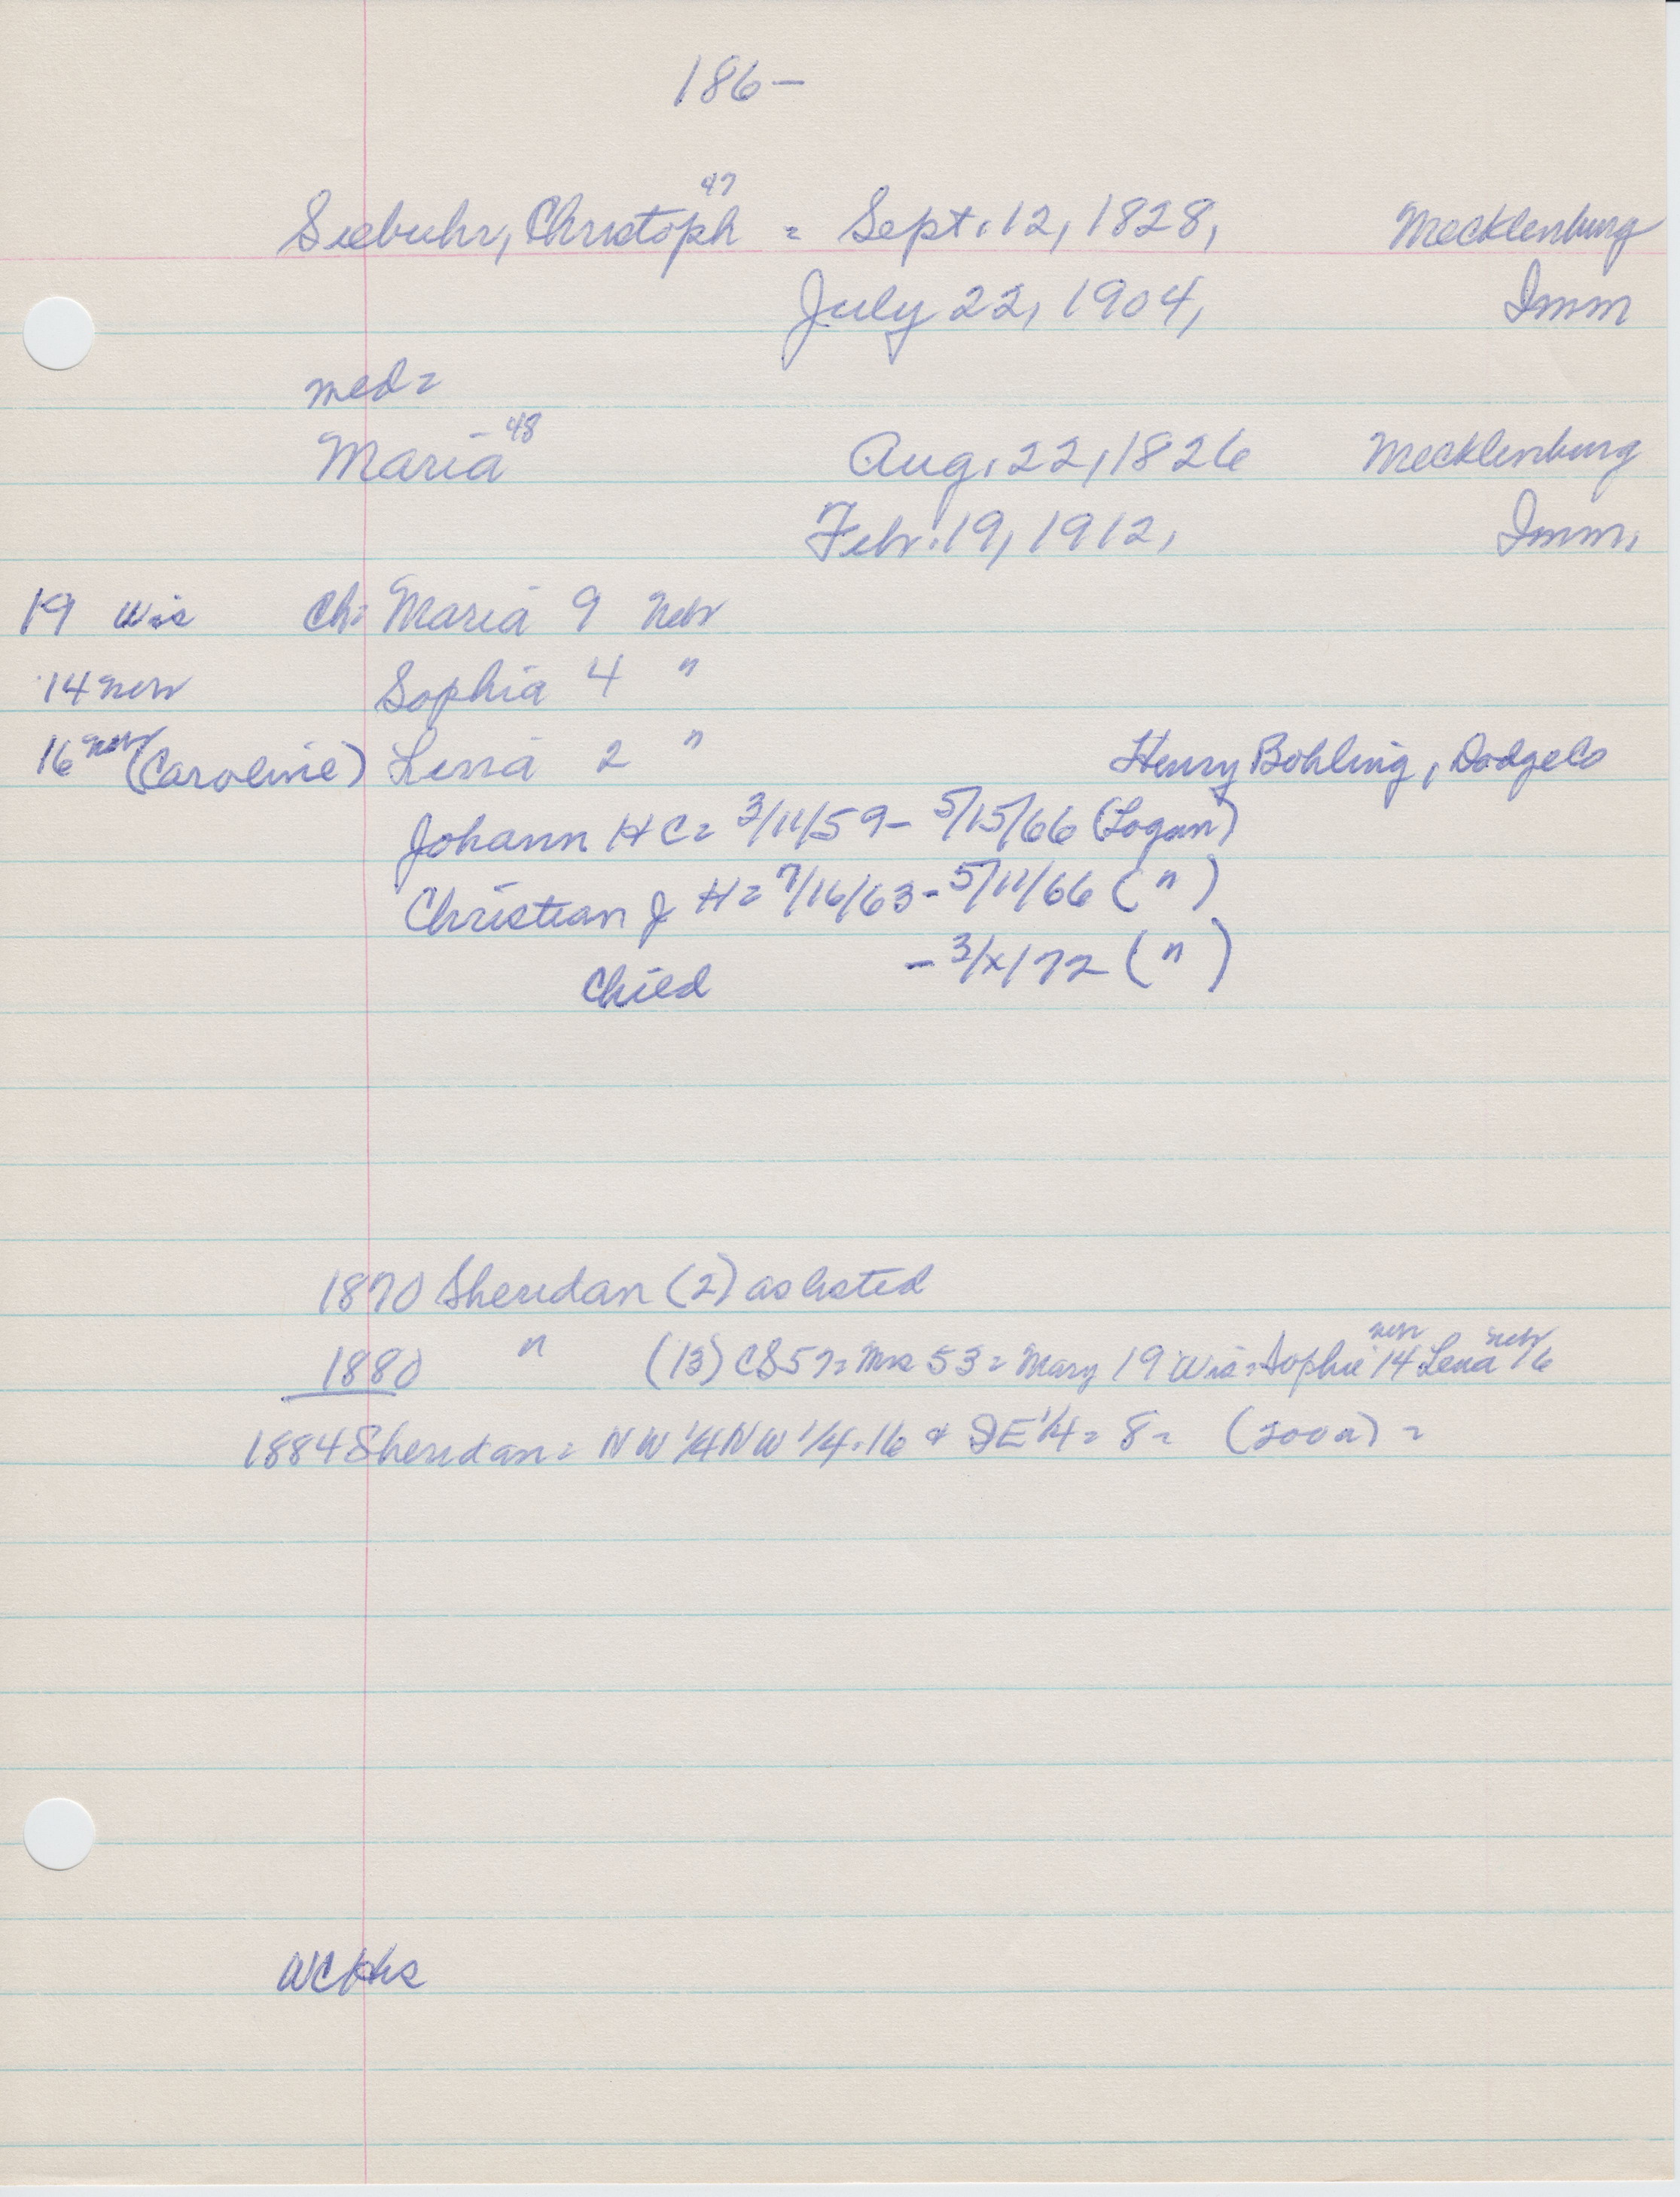 186-
47
Siebuhr, Christoph = Sept. 12, 1828, Mecklenburg
July 22, 1904, Imm
med=
Maria 48 Aug. 22, 1826 Mecklenburg
Febr. 19, 1912, Imm.
19 Wis Ch: Maria 9 Nebr
14 Nebr Sophia 4 "
16 Nebr (Caroline) Lena 2 " Henry Bohling, Dodge Co
Johann H C = 3/11/59 - 5/15/66 (Logan)
Christian J H = 7/16/63 - 5/11/66 ( " )
Child - 3/x/72 ( " )
1870 Sheridan (2) as listed
1880 " (13) CS 57 = Mrs 53 = Mary 19 Wis = Sophie 14 Nebr Lena 16 Nebr
1884 Sheridan = NW 1/4 NW 1/4 . 16 & SE 1/4 = 8 = (200a) =